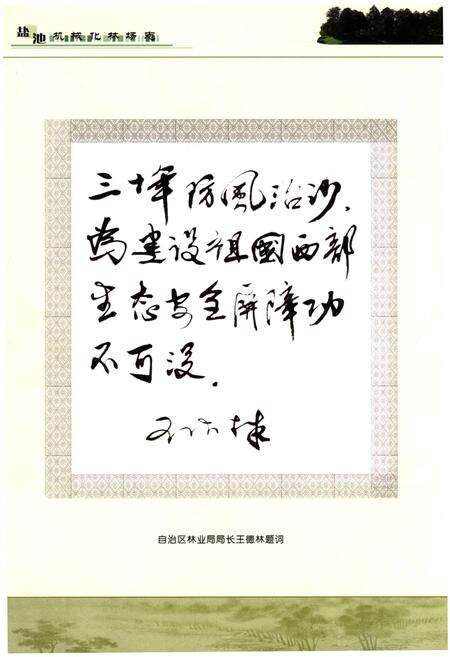 盐池机械化林场志
三十年防风治沙、
为建设祖国西部
生态安全屏障功
不可没.
王德林
自治区林业局局长王德林题词